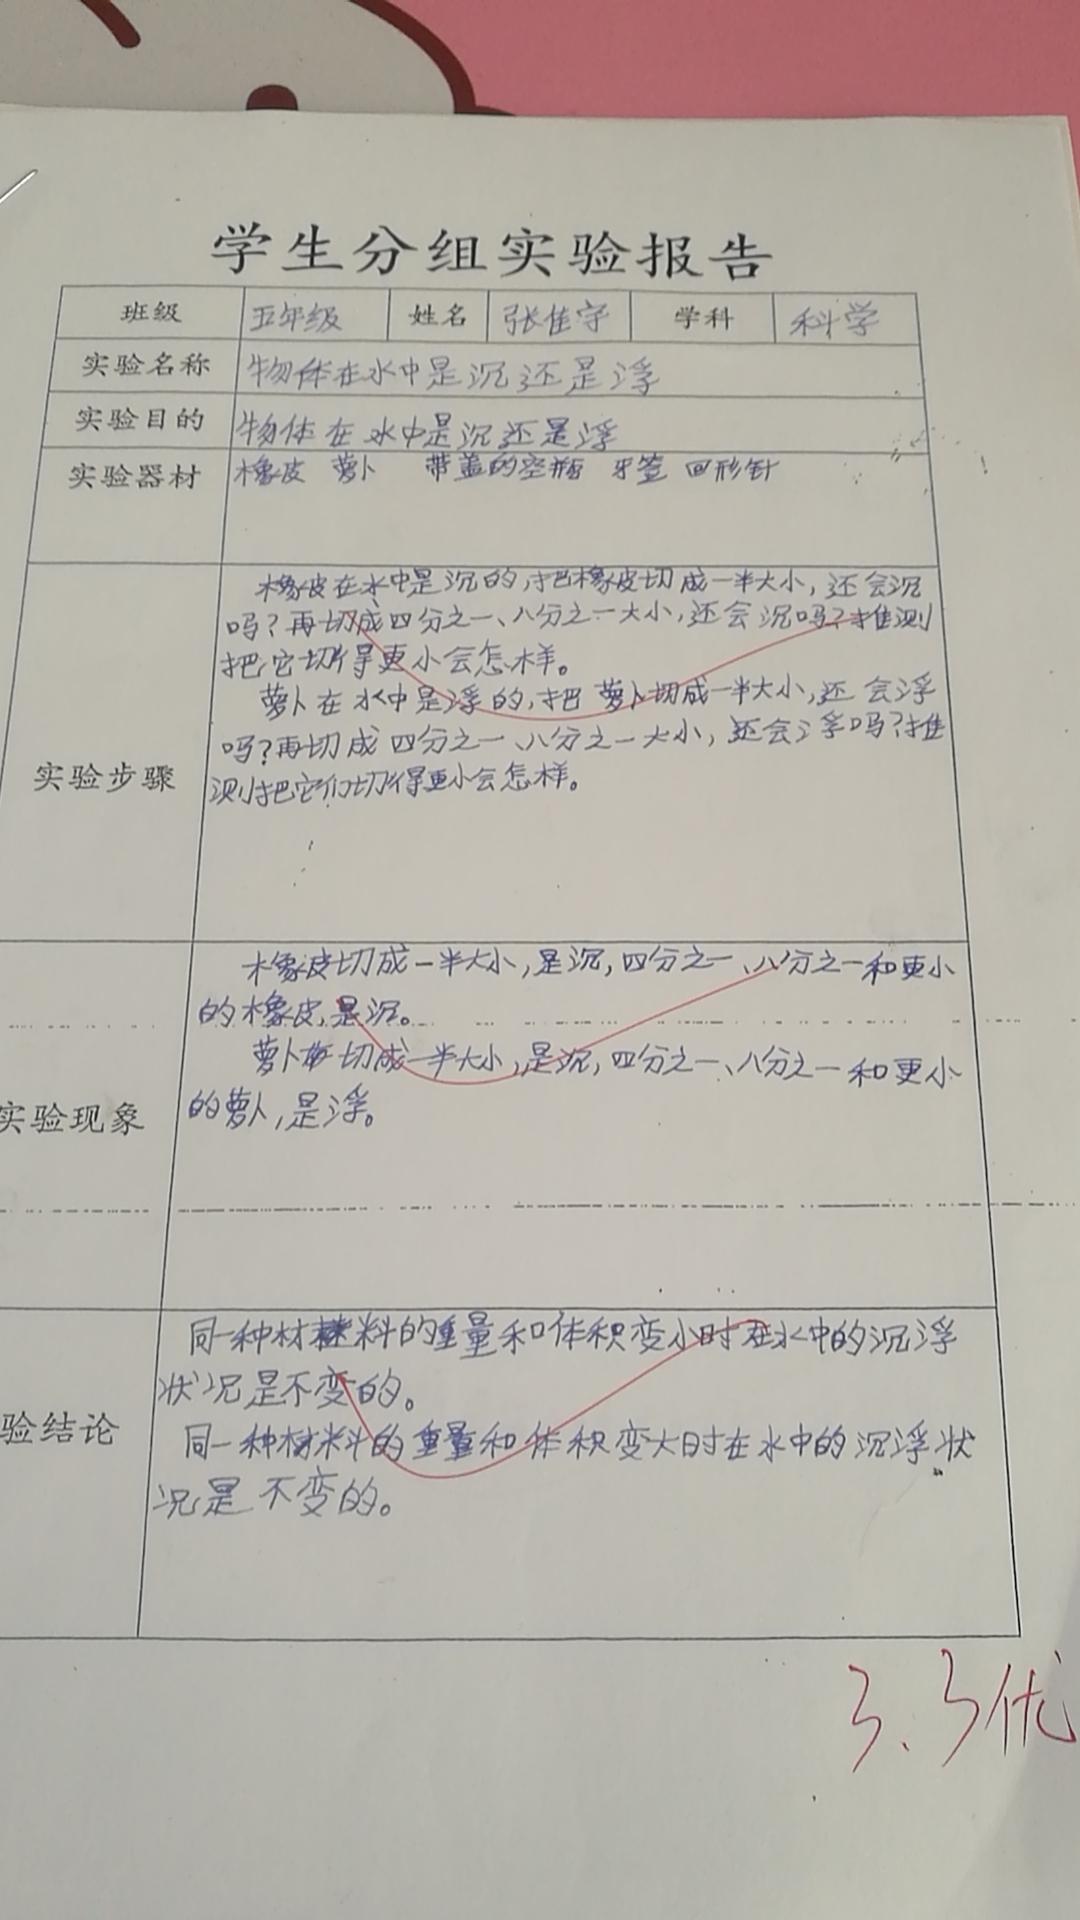 学生分组实验报告
班级 五年级 姓名 张佳宇 学科 科学
实验名称 物体在水中是沉还是浮
实验目的 物体在水中是沉还是浮
实验器材 橡皮 萝卜 带盖的空瓶 牙签 回形针
橡皮在水中是沉的,把橡皮切成一半大小,还会沉
吗?再切成四分之一、八分之一大小,还会沉吗?推测
把它切得更小会怎样。
萝卜在水中是浮的,把萝卜切成一半大小,还会浮
吗?再切成四分之一、八分之一大小,还会浮吗?推
实验步骤
测把它们切得更小会怎样。
橡皮切成一半大小,是沉,四分之一、八分之一和更小
的橡皮,是沉。
萝卜切成一半大小,是沉,四分之一、八分之一和更小
的萝卜,是浮。
实验现象
同一种材料的重量和体积变小时在水中的沉浮
状况是不变的。
验结论
同一种材料的重量和体积变大时在水中的沉浮状
况是不变的。
3.3优